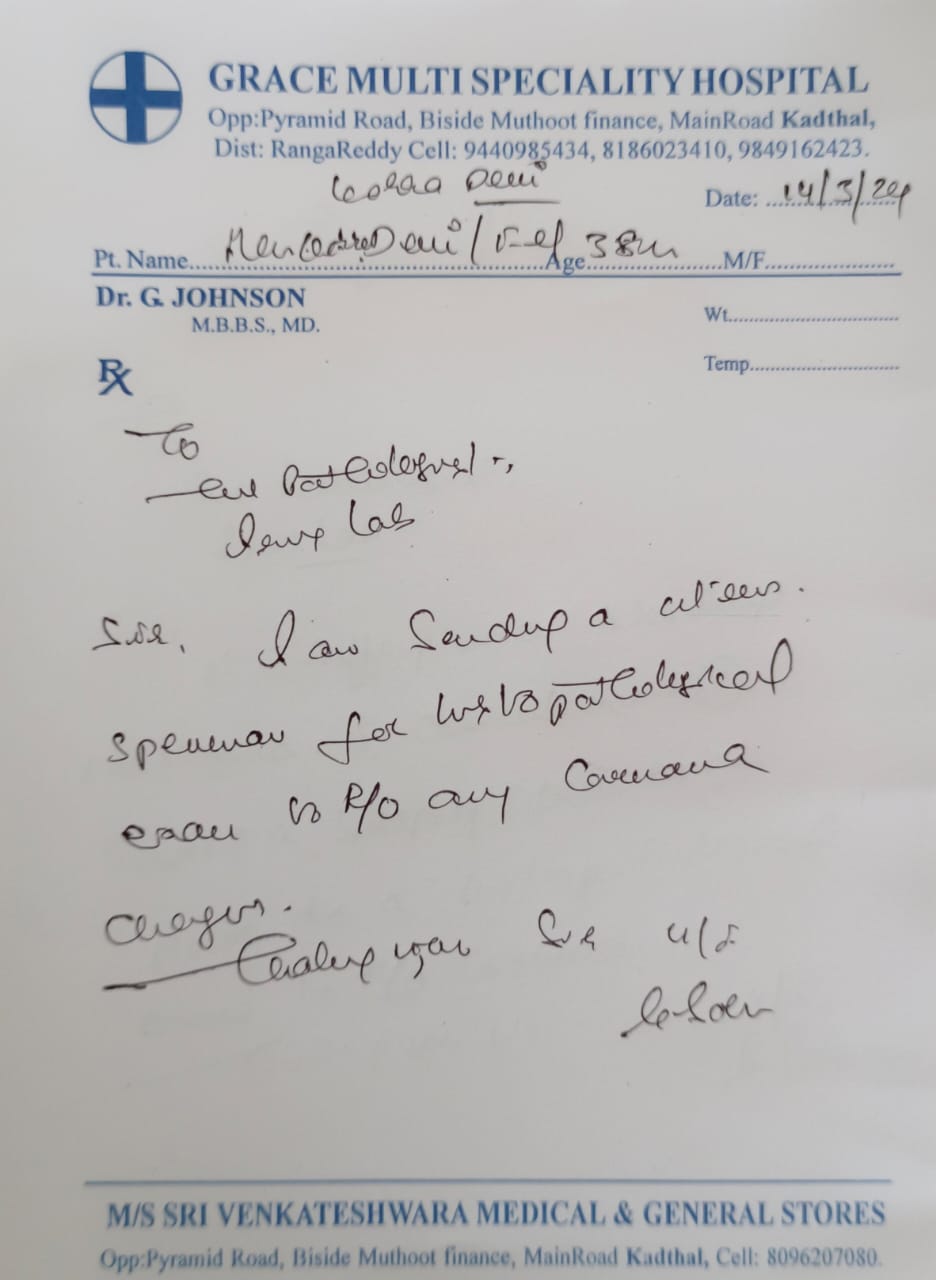 GRACE MULTI SPECIALITY HOSPITAL
Opp:Pyramid Road, Biside Muthoot finance, MainRoad Kadthal,
Dist: RangaReddy Cell: 9440985434, 8186023410, 9849162423.
Devi
Date: 14/3/24
Pt. Name Devi / Age 38 M/F
Dr. G. JOHNSON
M.B.B.S., MD.
Wt.
Rx
Temp
To
the Pathologist,
Lab
Sir, I am Sending a uterus
Specimen for histopathological
exam to R/o any Carcinoma
Changes.
Thanking you Sir
M/S SRI VENKATESHWARA MEDICAL & GENERAL STORES
Opp:Pyramid Road, Biside Muthoot finance, MainRoad Kadthal, Cell: 8096207080.